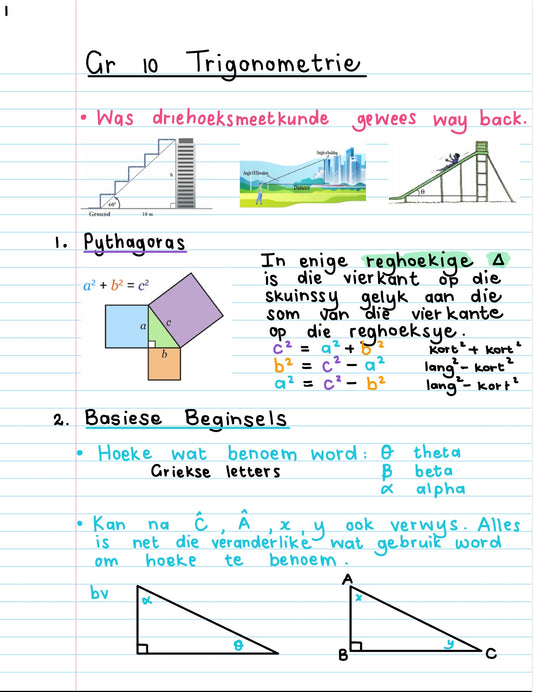 1
Gr 10 Trigonometrie
• Was driehoeksmeetkunde gewees way back.
h
40°
Ground 18 m
Height of building
Angle Of Elevation
Distance
θ
1. Pythagoras
a² + b² = c²
a
c
b
In enige reghoekige Δ
is die vierkant op die
skuinssy gelyk aan die
som van die vierkante
op die reghoeksye.
c² = a² + b² kort² + kort²
b² = c² - a² lang² - kort²
a² = c² - b² lang² - kort²
2. Basiese Beginsels
• Hoeke wat benoem word: θ theta
Griekse letters β beta
α alpha
• Kan na Ĉ, Â, x, y ook verwys. Alles
is net die veranderlike wat gebruik word
om hoeke te benoem.
bv
α
θ
A
x
B
y
C